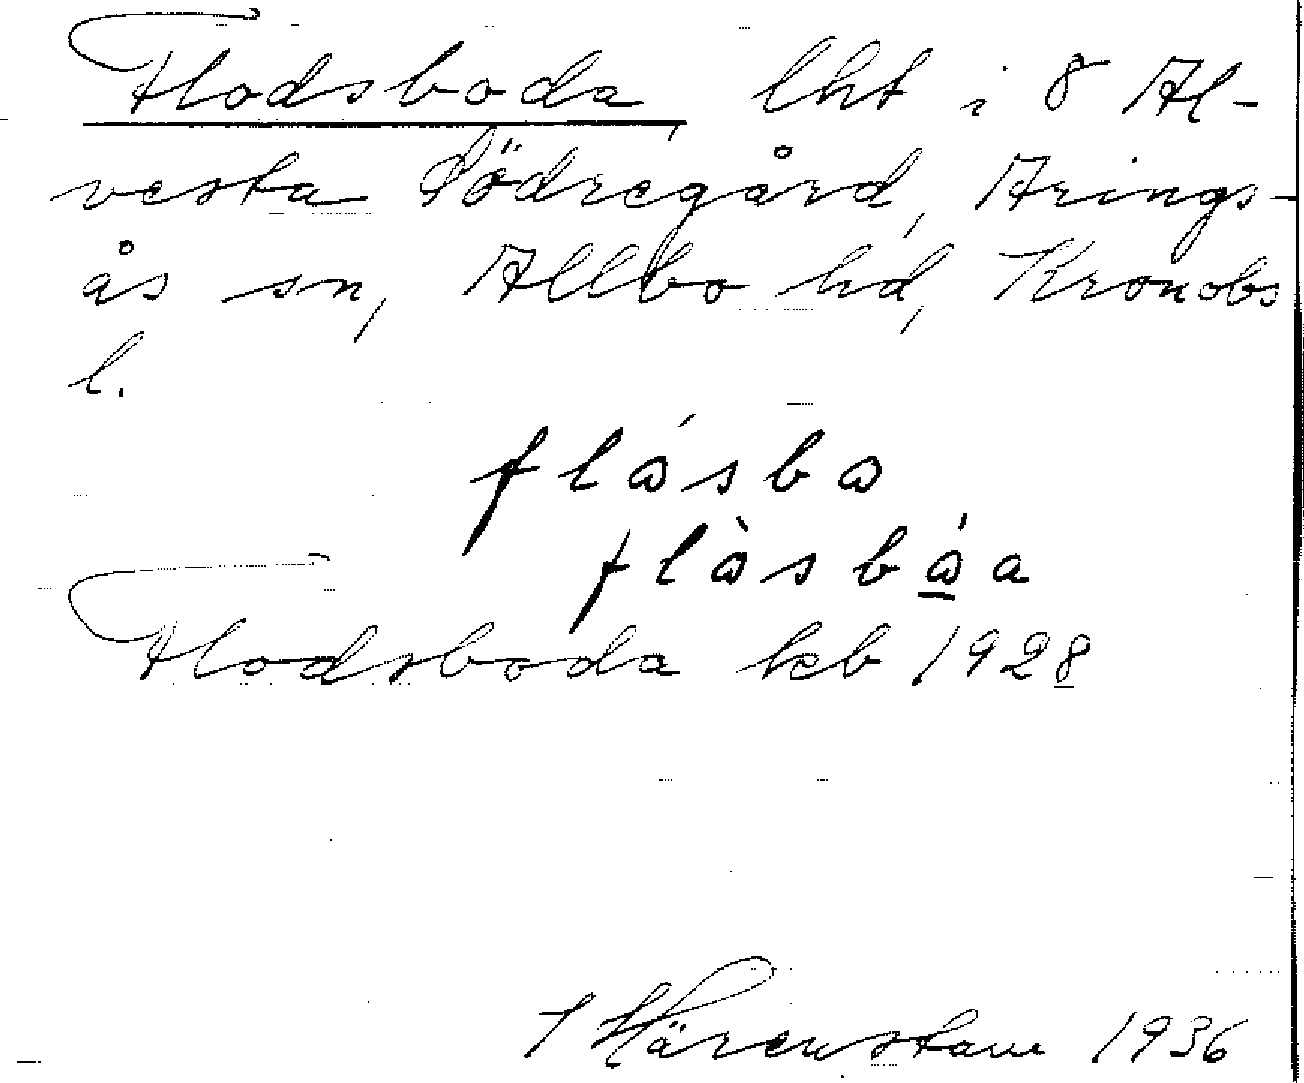 Flodsboda, lht i 8 Al-
vesta Södregård, Arings-
ås sn, Allbo hd, Kronobs
l.
flåsbo
flåsbåa
Flodsboda kb 1928
1936